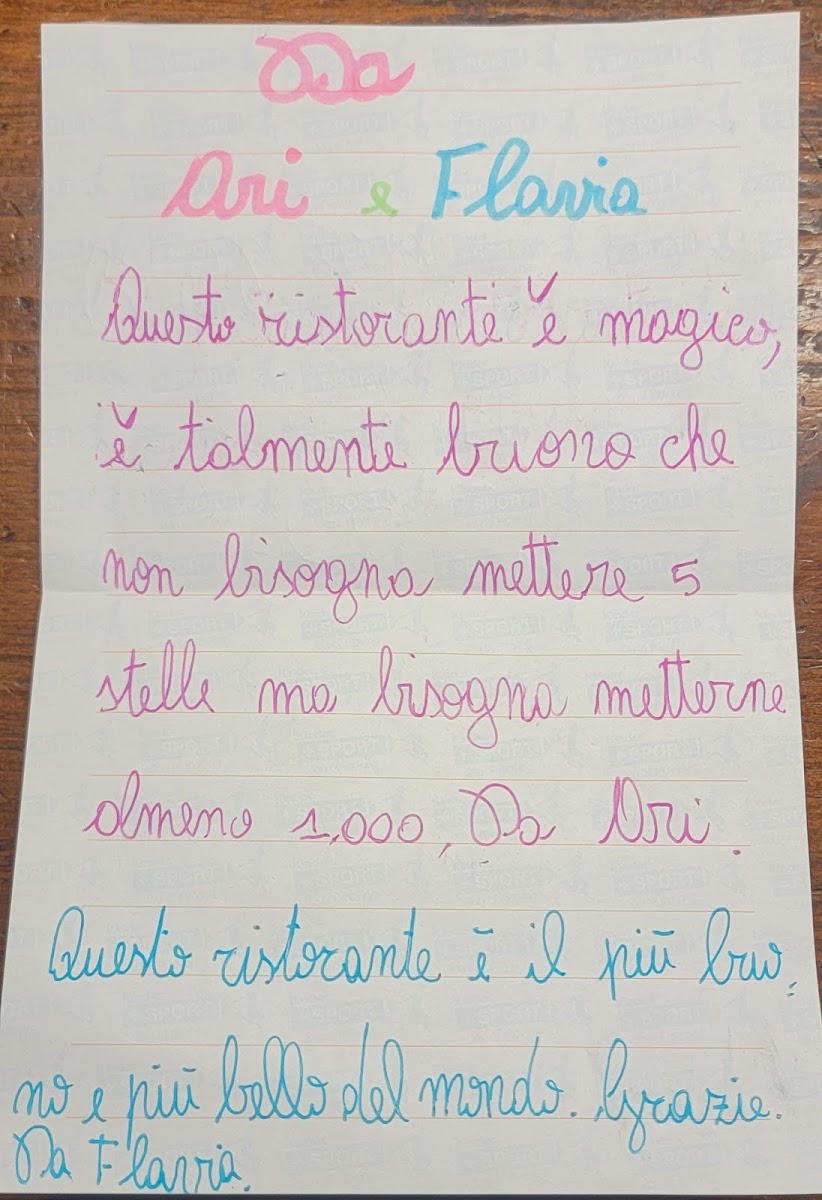 Da
Ari e Flavia
Questo ristorante è magico,
è talmente buono che
non bisogna mettere 5
stelle ma bisogna metterne
almeno 1.000, Da Ari.
Questo ristorante è il più buo=
no e più bello del mondo. Grazie.
Da Flavia.